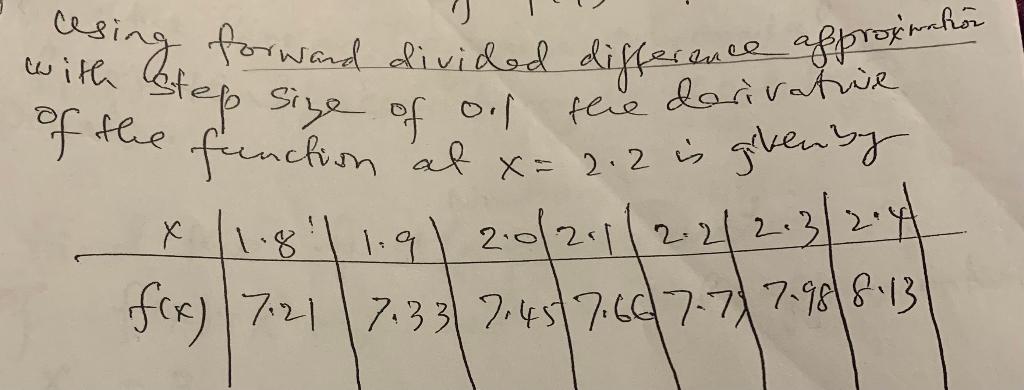 Using forward divided difference approximation
with step size of 0.1 the derivative
of the function at x = 2.2 is given by
x | 1.8 | 1.9 | 2.0 | 2.1 | 2.2 | 2.3 | 2.4
f(x) | 7.21 | 7.33 | 7.45 | 7.66 | 7.98 | 8.13